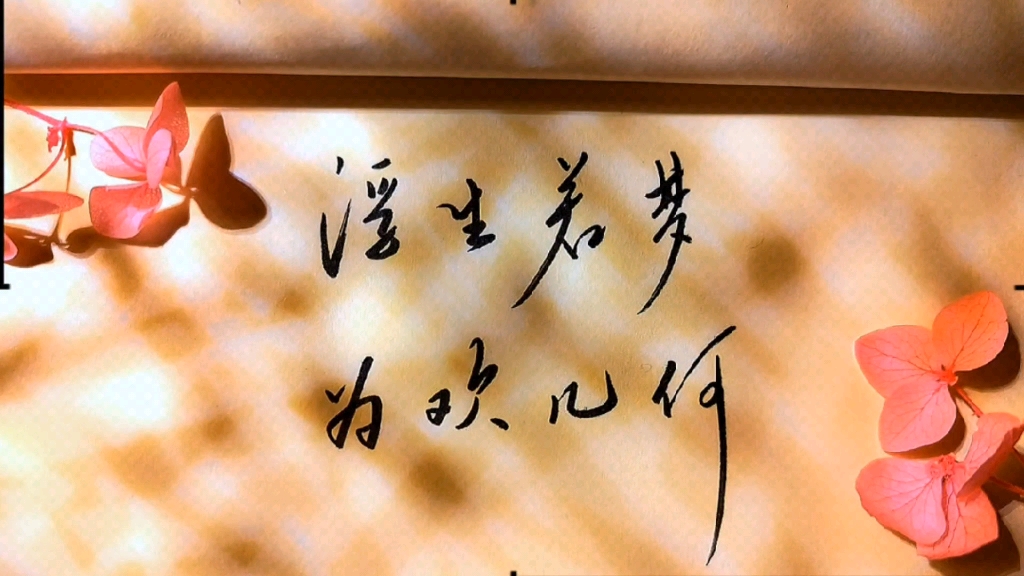 浮生若梦
为欢几何